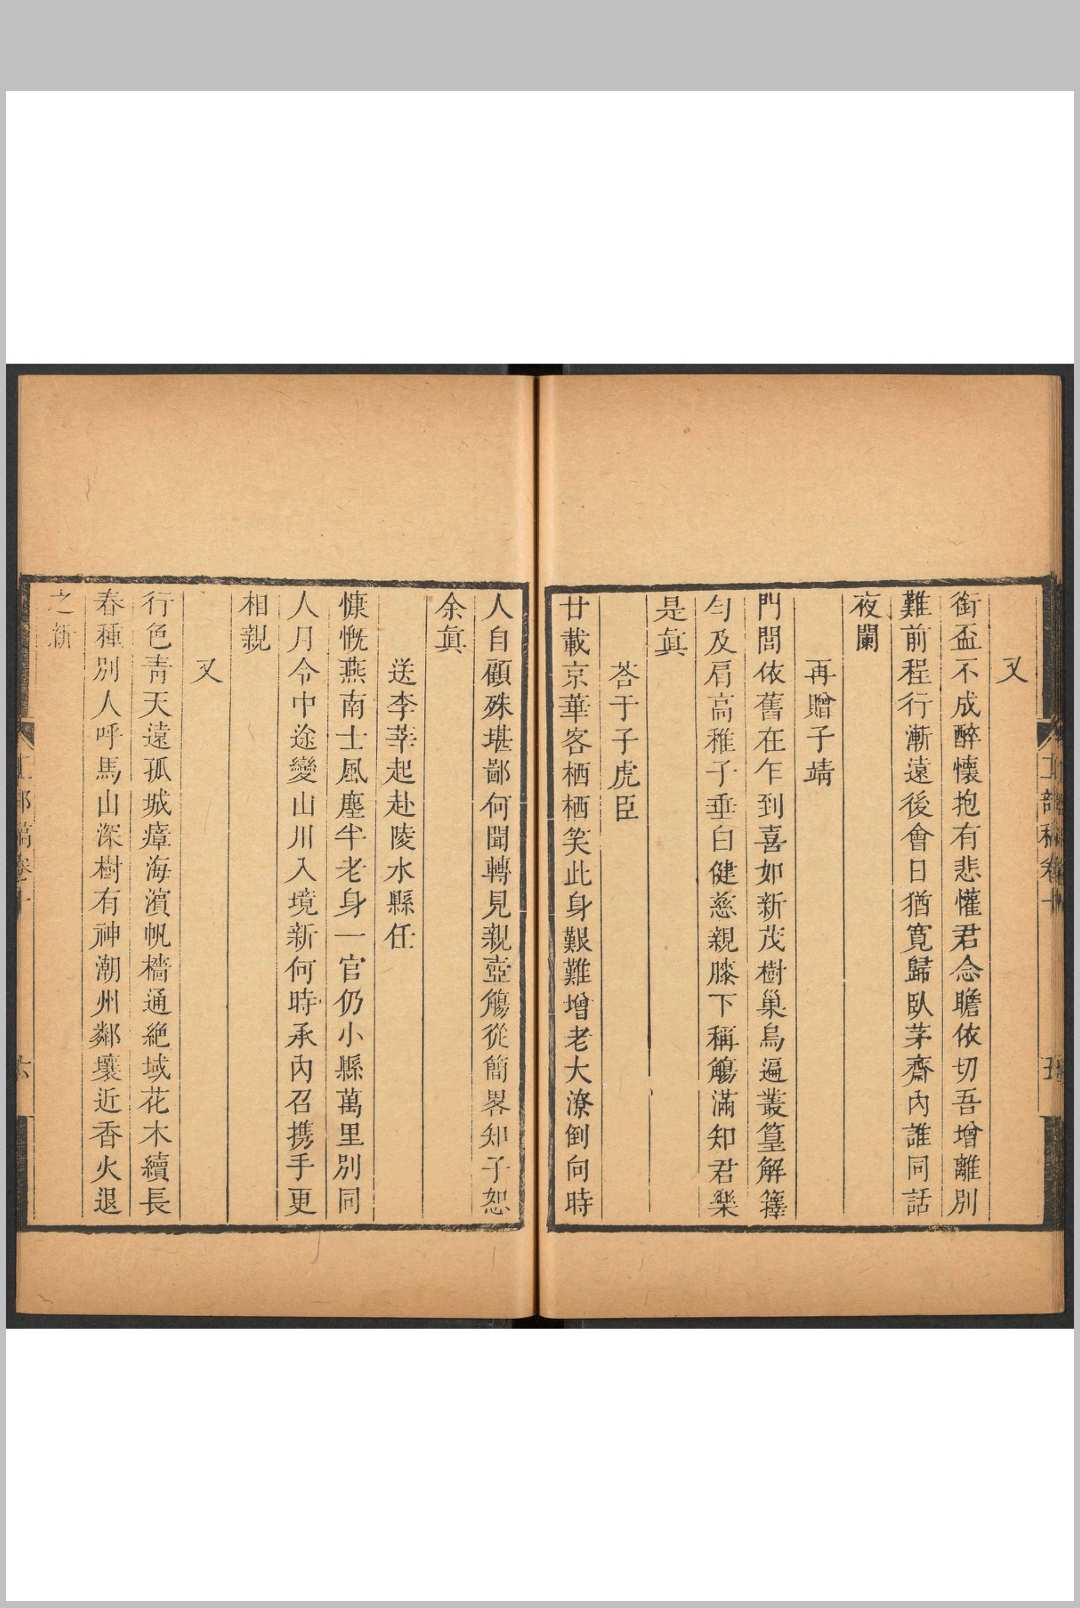 又
銜盃不成醉懷抱有悲懽君念瞻依切吾增離別
難前程行漸遠後會日猶寬歸臥茅齋內誰同話
夜闌
再贈子靖
門閭依舊在乍到喜如新茂樹巢烏遍叢篁解籜
勻及肩高稚子垂白健慈親膝下稱觴滿知君樂
是眞
荅于子虎臣
廿載京華客栖栖笑此身艱難增老大潦倒向時
人自顧殊堪鄙何聞轉見親壺觴從簡畧知子恕
余眞
送李莘起赴陵水縣任
慷慨燕南士風塵半老身一官仍小縣萬里別同
人月令中途變山川入境新何時承內召攜手更
相親
又
行色靑天遠孤城瘴海濱帆檣通絶域花木續長
春種別人呼馬山深樹有神潮州鄰壤近香火退
之新